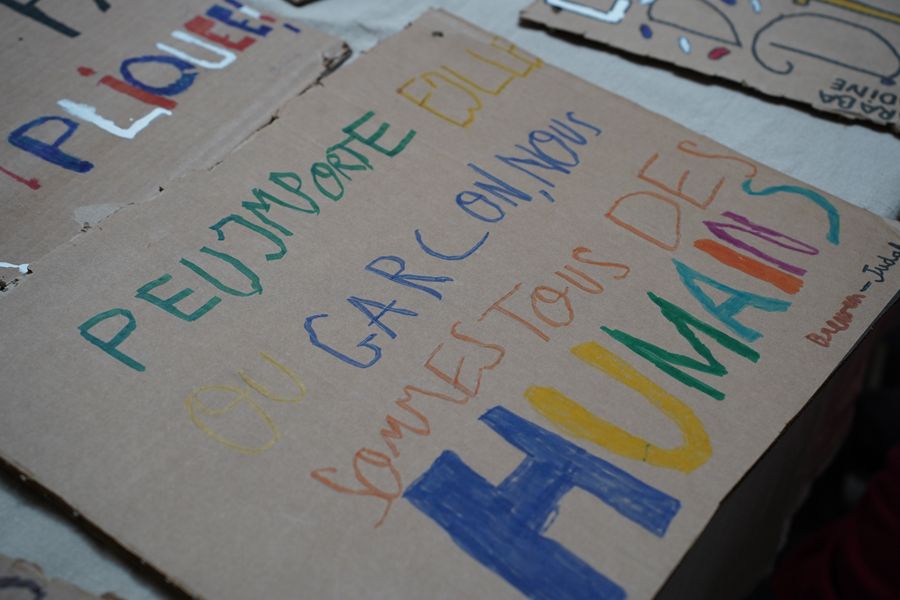 PLIQUER
PEUIMPORTE FILLE
OU GARCON, NOUS
SOMMES TOUS DES
HUMAINS
RABA
DINE